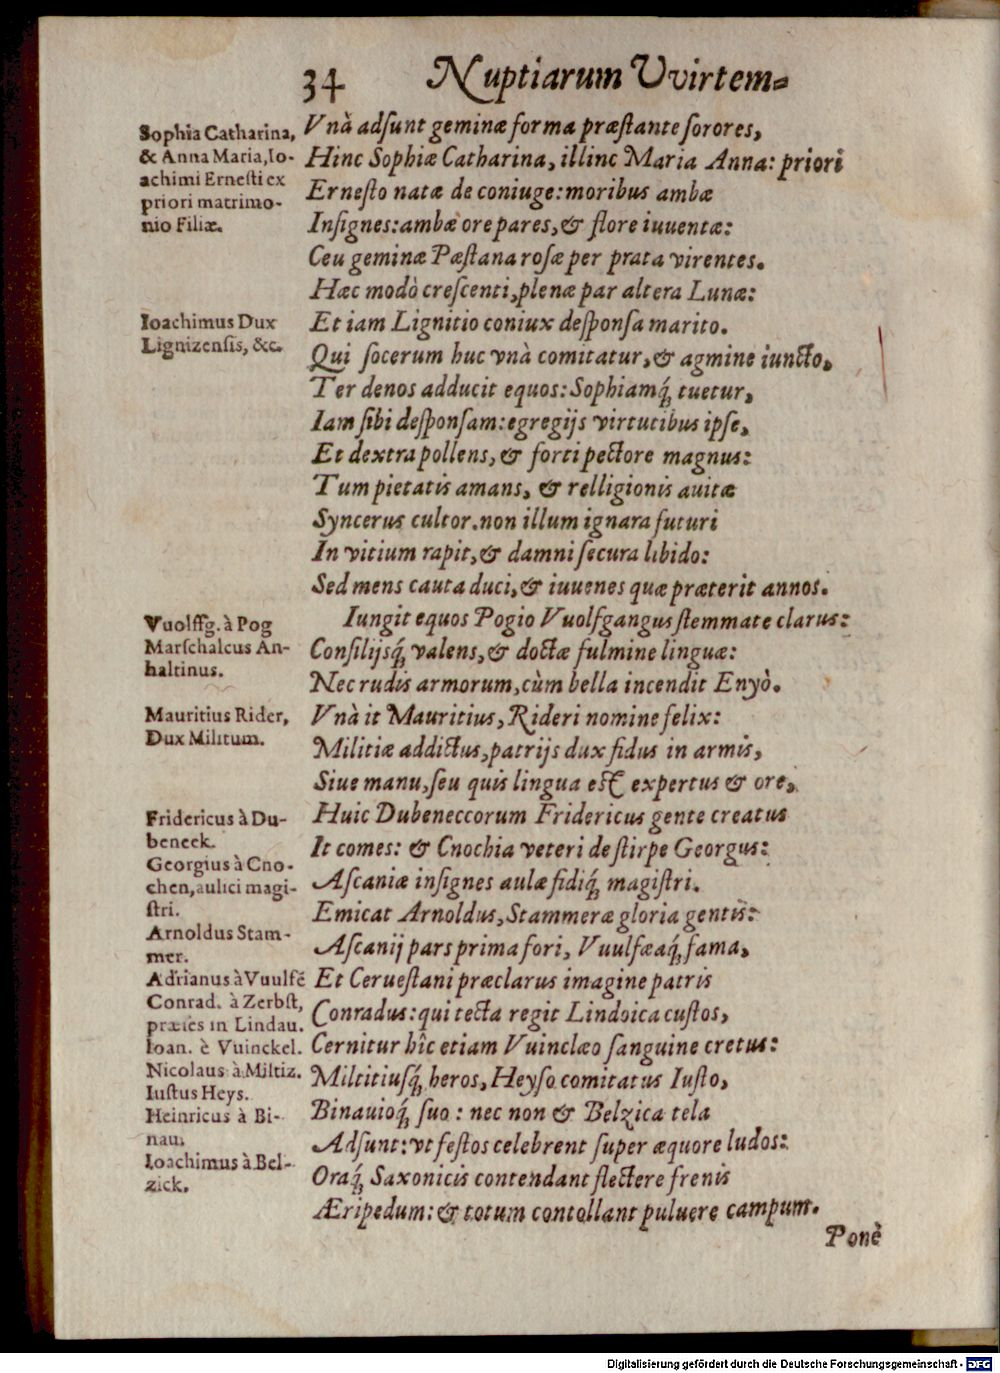 34 Nuptiarum Vvirtem-
Sophia Catharina,
& Anna Maria, Io-
achimi Ernesti ex
priori matrimo-
nio Filiæ.
Vnà adſunt geminæ forma præſtante ſorores,
Hinc Sophiæ Catharina, illinc Maria Anna: priori
Erneſto natæ de coniuge: moribus ambæ
Inſignes: ambæ ore pares, & flore iuuentæ:
Ceu geminæ Pæſtana roſæ per prata virentes.
Hæc modò creſcenti, plenæ par altera Lunæ:
Ioachimus Dux
Lignizenſis, &c.
Et iam Lignitio coniux deſponſa marito.
Qui ſocerum huc vnà comitatur, & agmine iuncto,
Ter denos adducit equos: Sophiamq́; tuetur,
Iam ſibi deſponſam: egregijs virtutibus ipſe,
Et dextra pollens, & forti pectore magnus:
Tum pietatis amans, & relligionis auitæ
Syncerus cultor. non illum ignara futuri
In vitium rapit, & damni ſecura libido:
Sed mens cauta duci, & iuuenes quæ præterit annos.
Vuolffg. à Pog
Marſchalcus An-
haltinus.
Iungit equos Pogio Vuolfgangus ſtemmate clarus:
Conſilijsq́; valens, & doctæ fulmine linguæ:
Nec rudis armorum, cùm bella incendit Enyò.
Mauritius Rider,
Dux Militum.
Vnà it Mauritius, Rideri nomine felix:
Militiæ addictus, patrijs dux fidus in armis,
Siue manu, ſeu quis lingua eſt expertus & ore,
Fridericus à Du-
beneck.
Georgius à Cno-
chen, aulici magi-
ſtri.
Huic Dubeneccorum Fridericus gente creatus
It comes: & Cnochia veteri de ſtirpe Georgus:
Aſcaniæ inſignes aulæ fidiq́; magiſtri.
Arnoldus Stam-
mer.
Emicat Arnoldus, Stammeræ gloria gentis:
Aſcanij pars prima fori, Vuulfæaq́; fama,
Adrianus à Vuulfē
Conrad. à Zerbſt,
præſes in Lindau.
Et Cerueſtani præclarus imagine patris
Conradus: qui tecta regit Lindoica cuſtos,
Ioan. è Vuinckel.
Cernitur hîc etiam Vuinclæo ſanguine cretus:
Nicolaus à Miltiz.
Iuſtus Heys.
Miltitiuſq́; heros, Heyſo comitatus Iuſto,
Heinricus à Bi-
nau.
Binauioq́; ſuo: nec non & Belzica tela
Ioachimus à Bel-
zick.
Adſunt: vt feſtos celebrent ſuper æquore ludos:
Oraq́; Saxonicis contendant flectere frenis
Æripedum: & totum contollant puluere campum.
Ponè
Digitalisierung gefördert durch die Deutsche Forschungsgemeinschaft - DFG